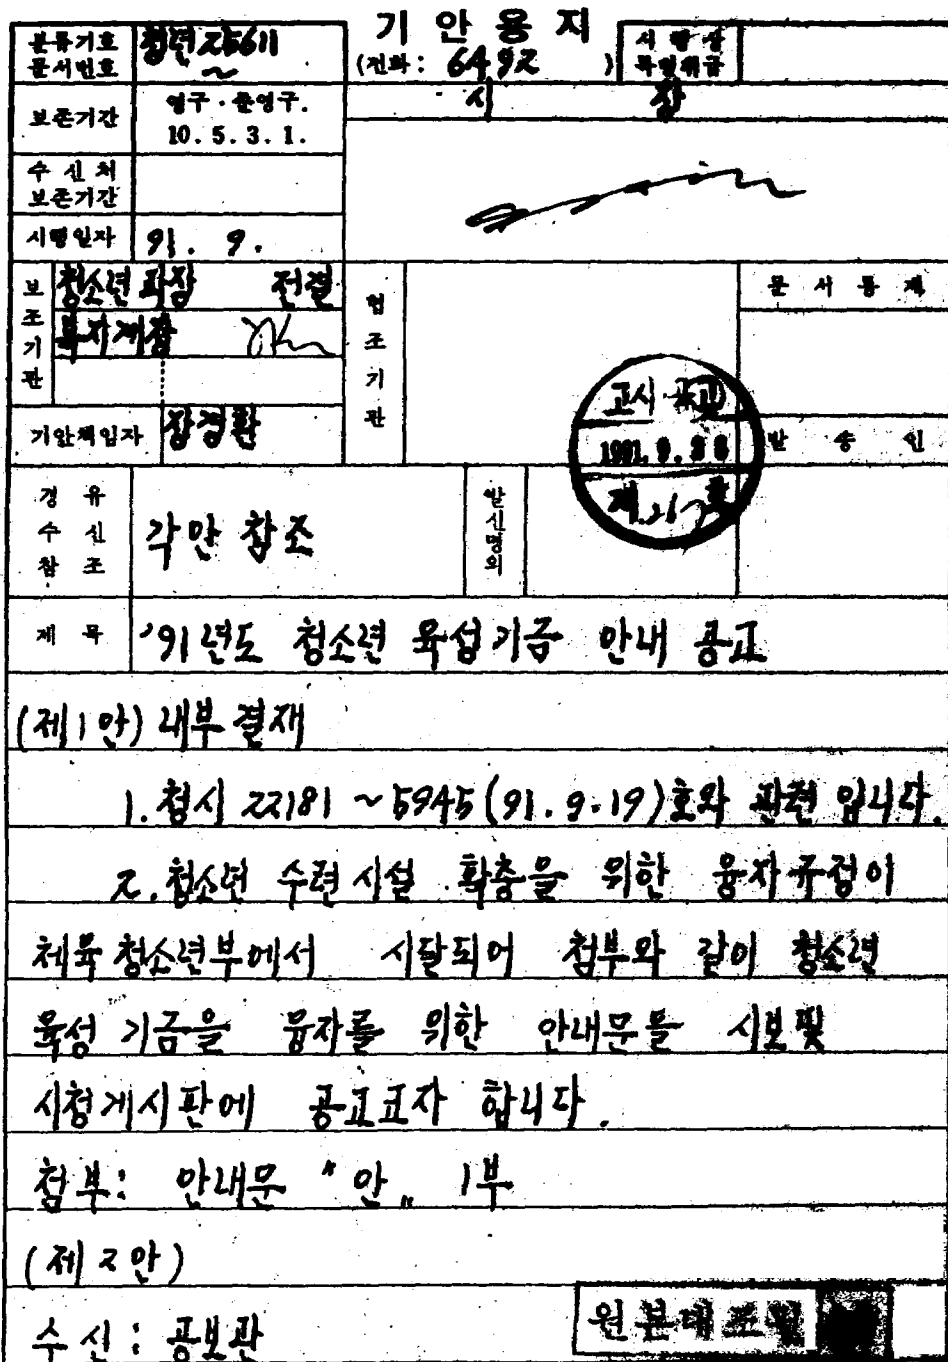 기안용지
분류기호 문서번호 청년 25611~
(전화: 6492)
시행상 특별취급
보존기간 영구·준영구. 10. 5. 3. 1.
시 장
수신처 보존기간
시행일자 91. 9.
보조기관
청소년과장 전결
협조기관
문서통제
기안책임자 장경환
고시·공고
1991. 9.
제 호
발송인
경유 수신 참조
각안 참조
발신명의
제목 '91년도 청소년 육성기금 안내 공고
(제1안) 내부결재
1. 청시 22181~5945(91. 9. 19)호와 관련 입니다.
2. 청소년 수련시설 확충을 위한 융자규정이
체육청소년부에서 시달되어 첨부와 같이 청소년
육성 기금을 융자를 위한 안내문을 시보및
시청게시판에 공고코자 합니다.
첨부: 안내문 "안" 1부
(제2안)
수신: 공보관
원본대조필